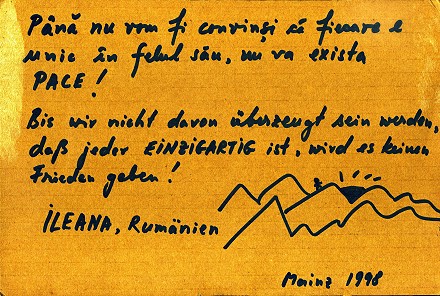 Până nu vom fi convinși că fiecare e
unic în felul său, nu va exista
PACE!
Bis wir nicht davon überzeugt sein werden,
daß jeder EINZIGARTIG ist, wird es keinen
Frieden geben!
ILEANA, Rumänien
Mainz 1998